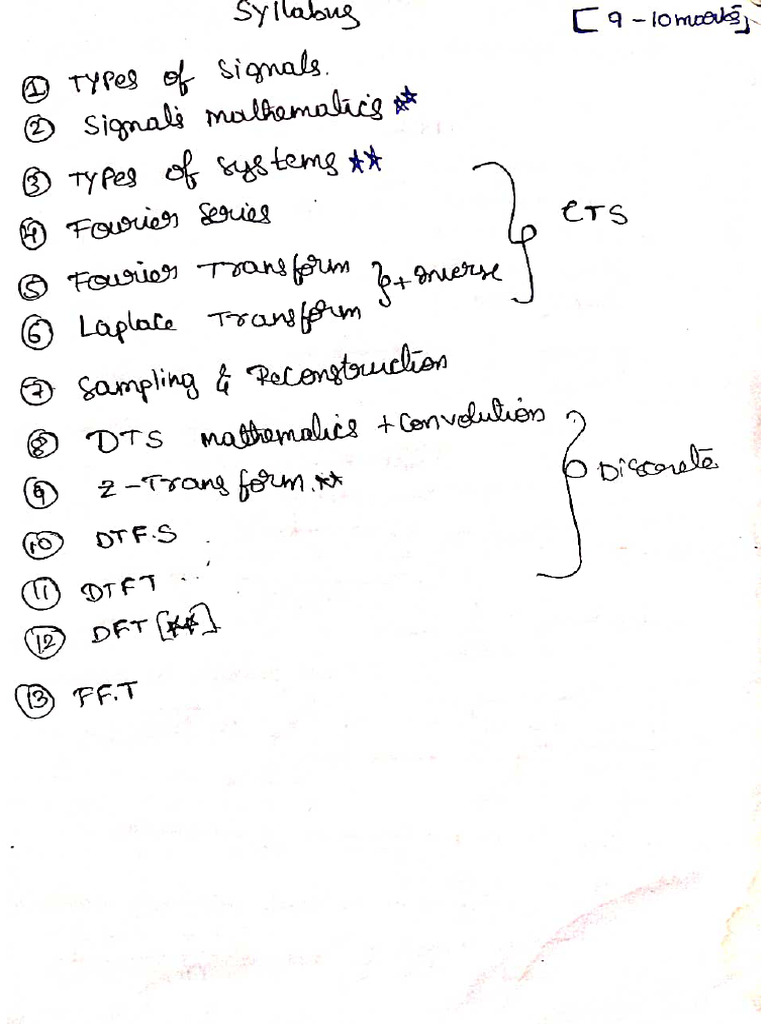 Syllabus
[9-10 marks]
① Types of signals.
② Signals mathematics **
③ Types of systems **
④ Fourier Series
CTS
⑤ Fourier Transform
+ Inverse
⑥ Laplace Transform
⑦ Sampling & Reconstruction
⑧ DTS mathematics + convolution
⑨ Z-Transform. **
Discrete
⑩ DTF.S
⑪ DTFT
⑫ DFT [**]
⑬ FF.T